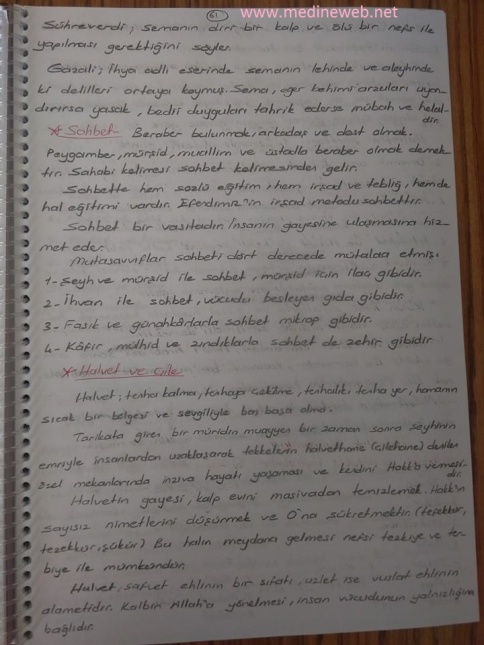 www.medineweb.net
51
Sühreverdi; semanın diri bir kalp ve ölü bir nefs ile
yapılması gerektiğini söyler.
Gazali; İhya adlı eserinde semanın lehinde ve aleyhinde
ki delilleri ortaya koymuş. Sema, eğer behimi arzuları uyan-
dırırsa yasak, bedii duyguları tahrik ederse mübah ve helal-
dir.
* Sohbet- Beraber bulunmak, arkadaş ve dost olmak.
Peygamber, mürşid, muallim ve üstadla beraber olmak demek-
tir. Sahabi kelimesi sohbet kelimesinden gelir.
Sohbette hem sözlü eğitim, hem irşad ve tebliğ, hem de
hal eğitimi vardır. Efendimiz'in irşad metodu sohbettir.
Sohbet bir vasıtadır. İnsanın gayesine ulaşmasına hiz-
met eder.
Mutasavvıflar sohbeti dört derecede mütalaa etmiş:
1- Şeyh ve mürşid ile sohbet, mürşid için ilaç gibidir.
2- İhvan ile sohbet, vücudu besleyen gıda gibidir.
3- Fasık ve günahkârlarla sohbet mikrop gibidir.
4- Kâfir, mülhid ve zındıklarla sohbet de zehir gibidir
* Halvet ve Çile
Halvet; tenha kalma, tenhaya çekilme, tenhalık, tenha yer, hamamın
sıcak bir bölgesi ve sevgiliyle baş başa olma.
Tarikata giren bir müridin muayyen bir zaman sonra şeyhinin
emriyle insanlardan uzaklaşarak tekkelerin halvethane (çilehane) denilen
özel mekanlarında inziva hayatı yaşaması ve kendini Hakk'a vermesi-
dir.
Halvetin gayesi, kalp evini masivadan temizlemek. Hakk'ın
sayısız nimetlerini düşünmek ve O'na şükretmektir. (tefekkür,
tezekkür, şükür) Bu halin meydana gelmesi nefsi tezkiye ve ter-
biye ile mümkündür.
Halvet, safvet ehlinin bir sıfatı, uzlet ise vuslat ehlinin
alametidir. Kalbin Allah'a yönelmesi, insan vücudunun yalnızlığına
bağlıdır.